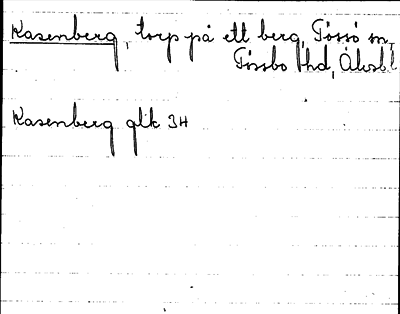 Kasenberg, torp på ett berg, Tössö sn,
Tössbo hd, Älvsbl
Kasenberg glk 34